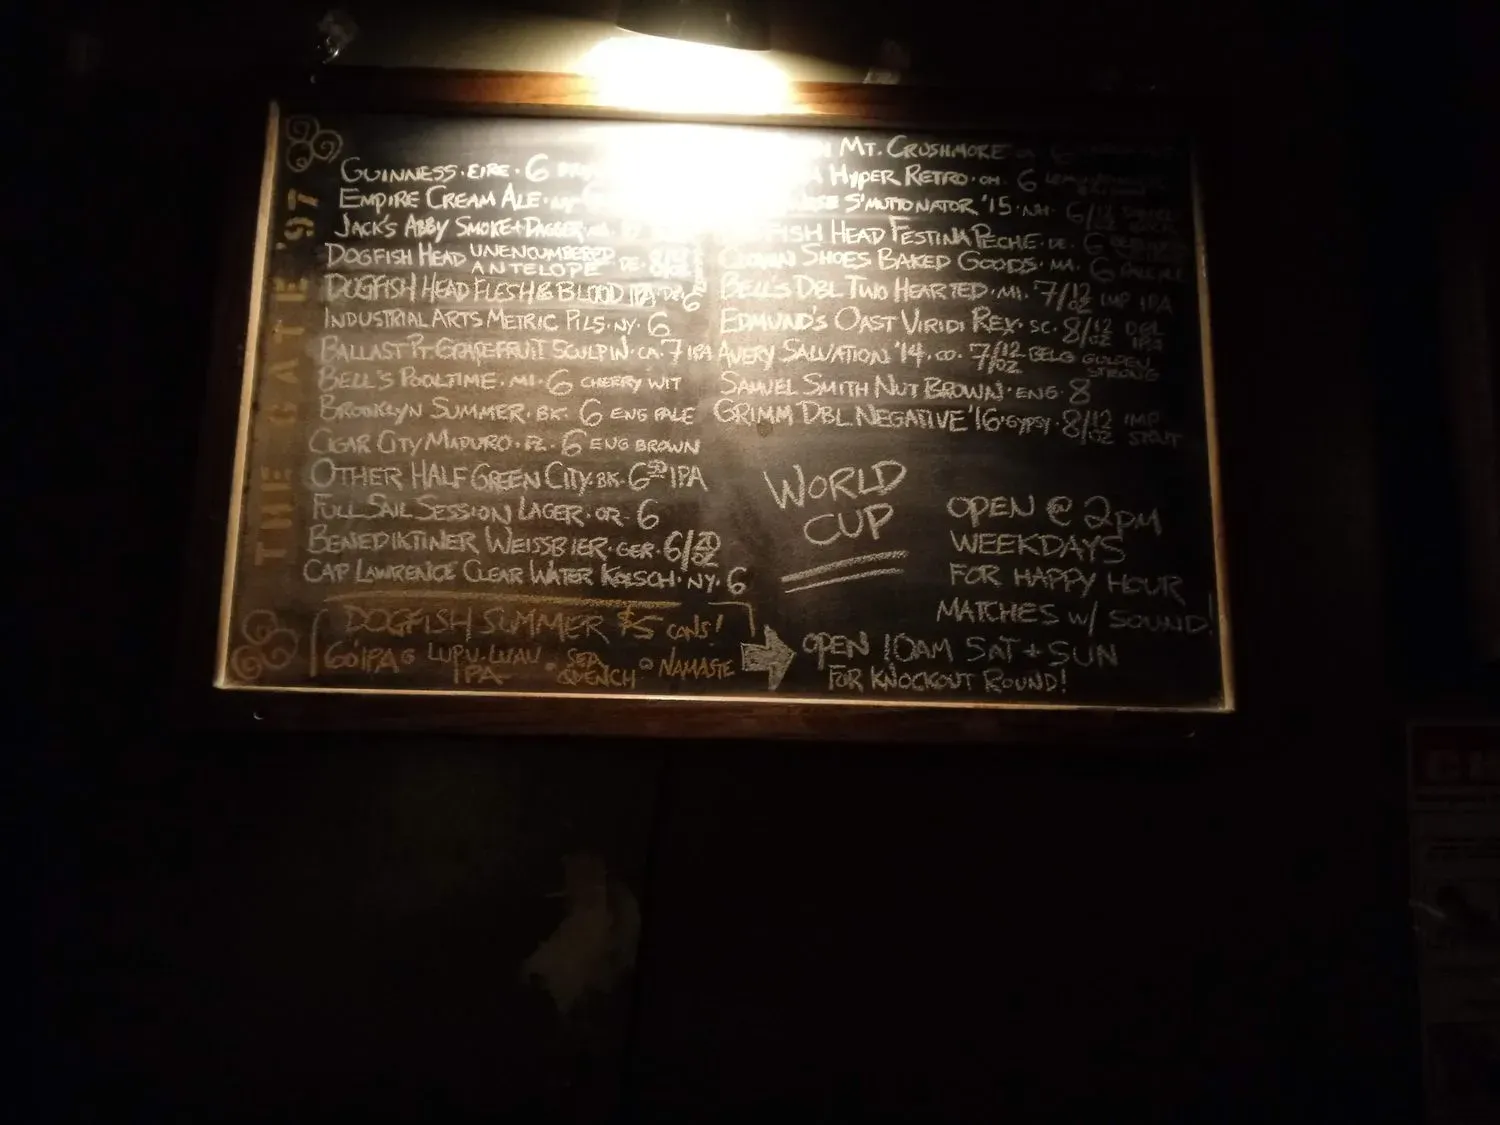 THE GATE '97
GUINNESS · EIRE · 6
EMPIRE CREAM ALE · NY
JACK'S ABBY SMOKE + DAGGER · MA.
DOGFISH HEAD UNENCUMBERED ANTELOPE · DE · 8/12 OZ
DOGFISH HEAD FLESH & BLOOD IPA · DE · 6
INDUSTRIAL ARTS METRIC PILS · NY · 6
BALLAST PT. GRAPEFRUIT SCULPIN · CA. 7 IPA
BELL'S POOLTIME · MI · 6 CHERRY WIT
BROOKLYN SUMMER · BK · 6 ENG PALE
CIGAR CITY MADURO · FL · 6 ENG BROWN
OTHER HALF GREEN CITY · BK · 6 50 IPA
FULL SAIL SESSION LAGER · OR · 6
BENEDIKTINER WEISSBIER · GER · 6/20 OZ
CAP LAWRENCE CLEAR WATER KOLSCH · NY · 6
DOGFISH SUMMER $5 CANS!
60 IPA LUPU-LUAU IPA SEA QUENCH NAMASTE
MT. CRUSHMORE
HYPER RETRO · OH · 6
S'MUTTONATOR '15 · NH · 6/12
FISH HEAD FESTINA PECHE · DE · 6
CLOWN SHOES BAKED GOODS · MA · 6 PALE ALE
BELL'S DBL TWO HEARTED · MI · 7/12 OZ IMP IPA
EDMUND'S OAST VIRIDI REX · SC · 8/12 OZ DBL IPA
AVERY SALVATION '14 · CO · 7/12 OZ BELG GOLDEN STRONG
SAMUEL SMITH NUT BROWN · ENG · 8
GRIMM DBL NEGATIVE '16 · GYPSY · 8/12 OZ IMP STOUT
WORLD
CUP
OPEN @ 2PM
WEEKDAYS
FOR HAPPY HOUR
MATCHES W/ SOUND!
OPEN 10AM SAT + SUN
FOR KNOCKOUT ROUND!